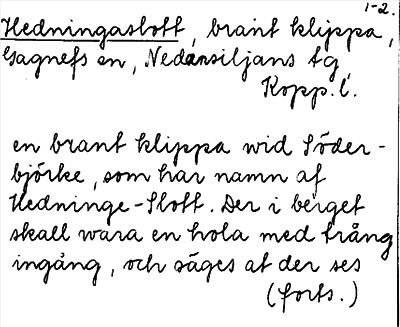 1-2.
Hedningaslott, brant klippa,
Gagnefs sn, Nedansiljans tg,
Kopp. l.
en brant klippa wid Söder-
björke, som har namn af
Hedninge-Slott. Der i berget
skall wara en hola med trång
ingång, och säges at der ses
(forts.)